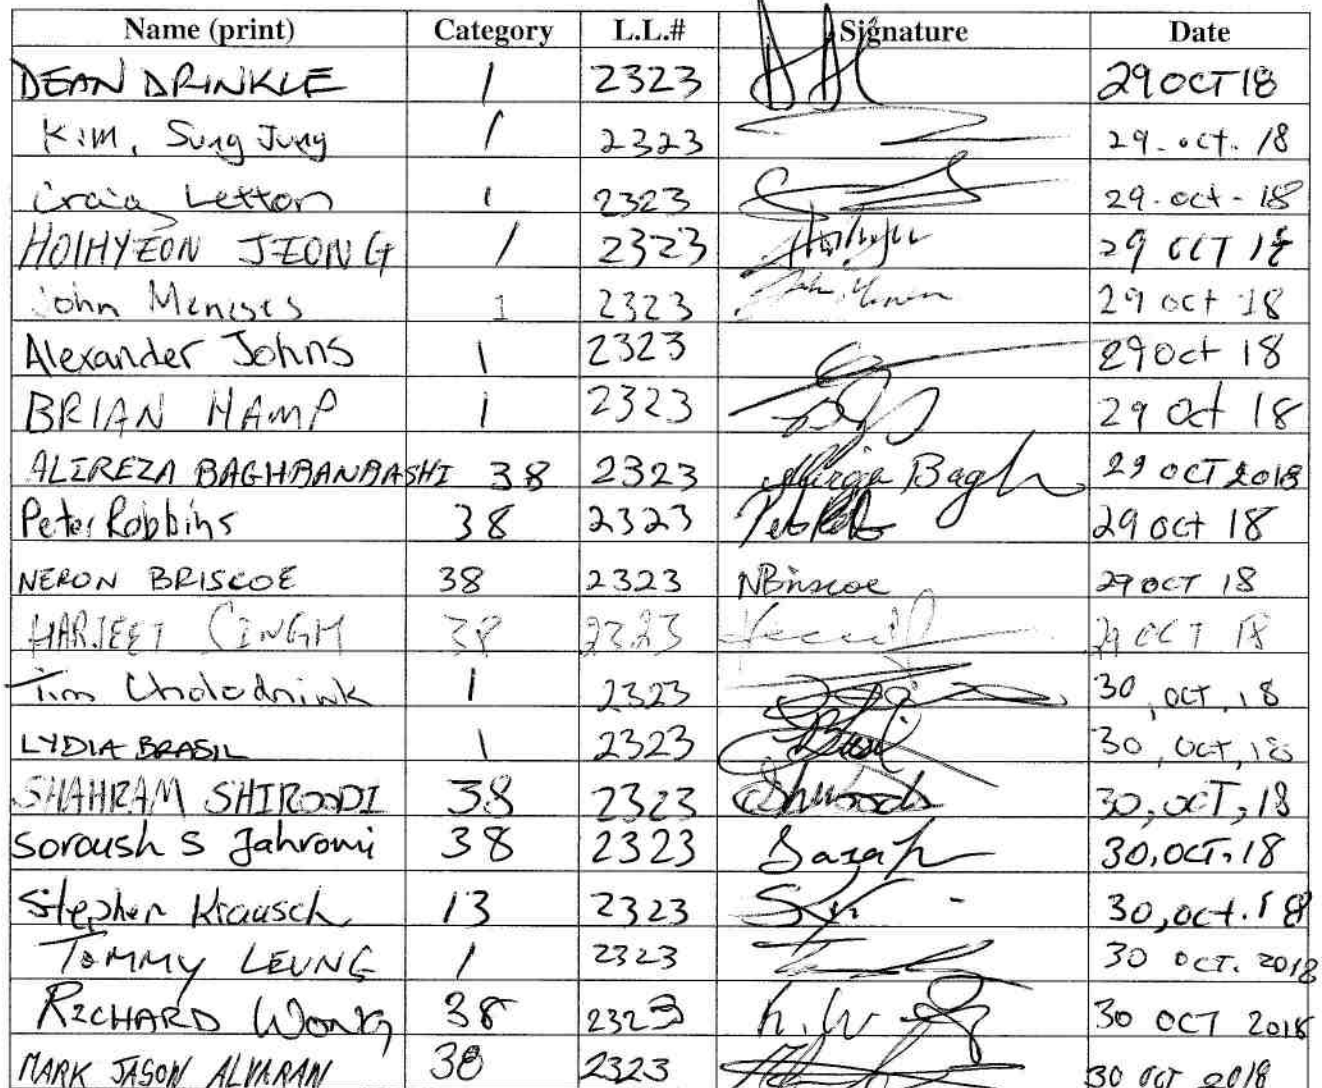 Name (print) Category L.L.# Signature Date
DEAN DRINKLE 1 2323 29 OCT 18
Kim, Sung Jung 1 2323 29. oct. 18
Craig Letton 1 2323 29. oct - 18
HOIHYEON JEONG 1 2323 29 OCT 18
John Meneses 1 2323 29 oct 18
Alexander Johns 1 2323 29 oct 18
BRIAN HAMP 1 2323 29 Oct 18
ALIREZA BAGHBANBASHI 38 2323 Bagh 29 OCT 2018
Peter Robbins 38 2323 29 oct 18
NERON BRISCOE 38 2323 NBriscoe 29 OCT 18
HARJEET CINGH 38 2323 29 OCT 18
Tim Cholodnink 1 2323 30, OCT, 18
LYDIA BRASIL 1 2323 30, Oct, 18
SHAHRAM SHIROODI 38 2323 30, OCT, 18
Soroush S Jahromi 38 2323 30, OCT, 18
Stephen Krausch 13 2323 30, oct. 18
TOMMY LEUNG 1 2323 30 OCT. 2018
RICHARD WONG 38 2323 30 OCT 2018
MARK JASON ALVARAN 38 2323 30 OCT 2018